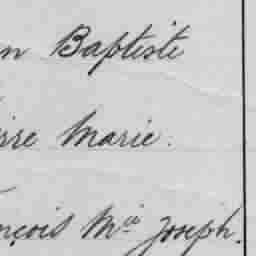 n Baptiste
rre Marie.
nçois Mie Joseph.